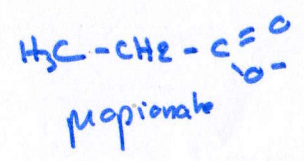 H₃C - CH2 - C = O
O -
propionate